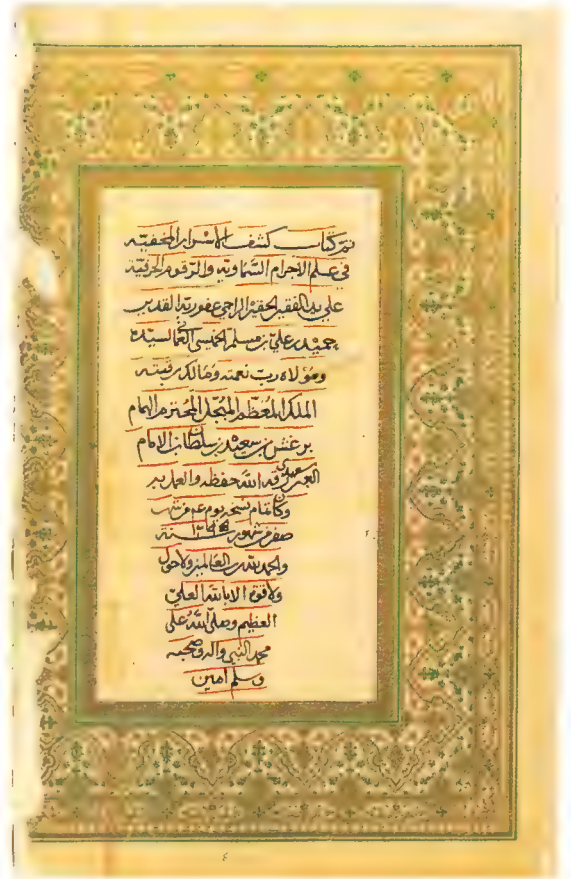 تم كتاب كشف الأسرار المخفية
في علم الأجرام السماوية والرقوم الحرفية
على يد الفقير الحقير الراجي عفو ربه القدير
حميد بن علي بن مسلم الخميسي العماني لسيده
ومولاه رب نعمته ومالك رقبته
الملك المعظم المبجل المحترم الهمام
برغش بن سعيد بن سلطان بن الامام
وفقه الله حفظه والعمل به
وكان تمام نسخه يوم من شهر
صفر من شهور سنة
والحمد لله رب العالمين ولا حول
ولا قوة الا بالله العلي
العظيم وصلى الله على
محمد النبي واله وصحبه
وسلم امين